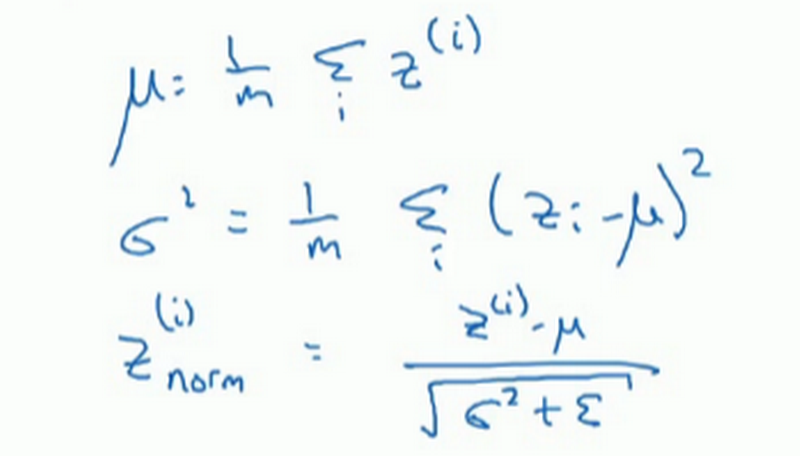 μ = 1/m Σ_i z^(i)
σ² = 1/m Σ_i (z_i - μ)²
z^(i)_norm = (z^(i) - μ) / √(σ² + ε)